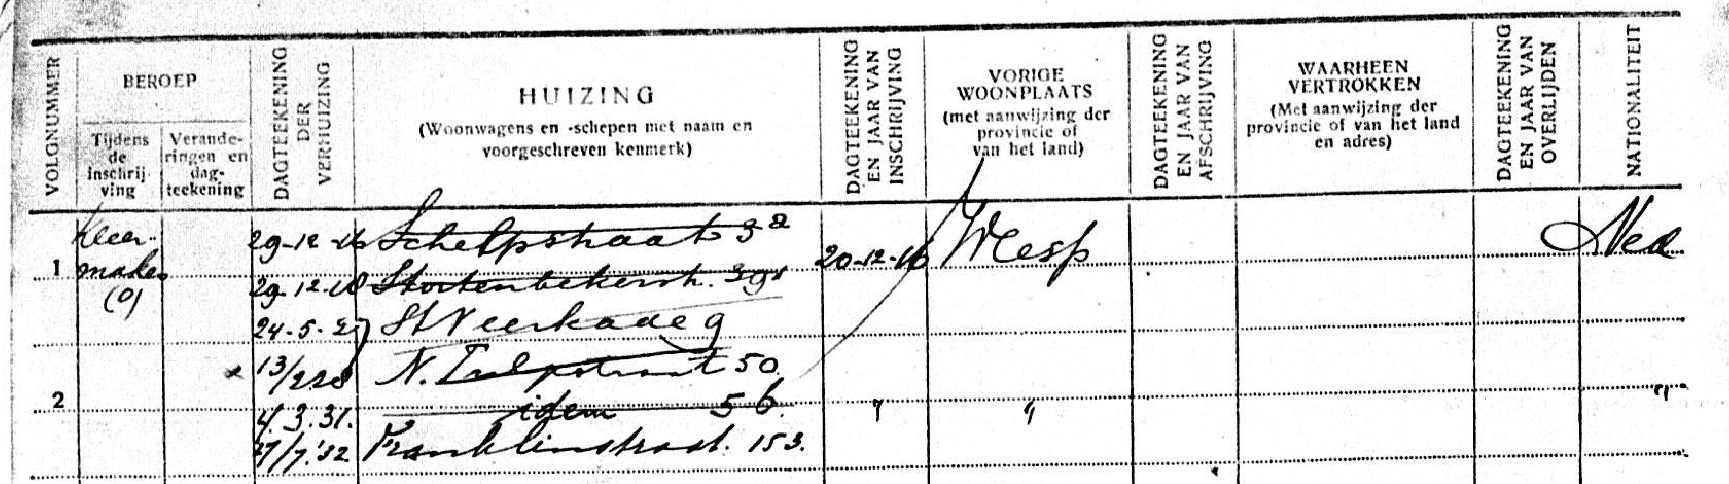 VOLGNUMMER
BEROEP
Tijdens
de
inschrij-
ving
Verande-
ringen en
dag-
teekening
DAGTEEKENING
DER
VERHUIZING
HUIZING
(Woonwagens en -schepen met naam en
voorgeschreven kenmerk)
DAGTEEKENING
EN JAAR VAN
INSCHRIJVING
VORIGE
WOONPLAATS
(met aanwijzing der
provincie of
van het land)
DAGTEEKENING
EN JAAR VAN
AFSCHRIJVING
WAARHEEN
VERTROKKEN
(Met aanwijzing der
provincie of van het land
en adres)
DAGTEEKENING
EN JAAR VAN
OVERLIJDEN
NATIONALITEIT
1
kleer-
maker
(o)
29-12-16 Schelpstraat 3a
20-12-16 Weesp Ned
29-12-18 Stortenbekerstr.
24-5-27 St Veerkade 9
13/2 28 N. Tulpstraat 50
2
4.3.31. idem 56 " " "
27/7.'32 Franklinstraat. 153.